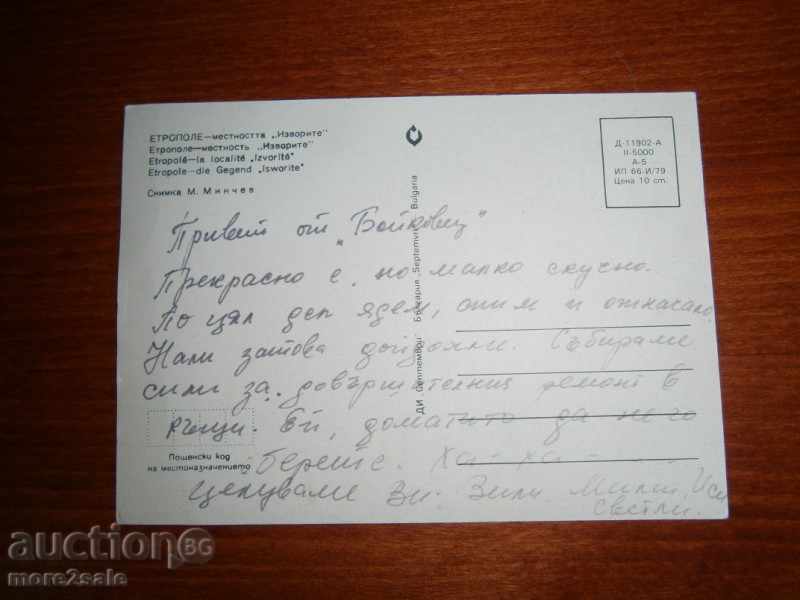 ЕТРОПОЛЕ—местността „Изворите"
Етрополе—местность „Изворите"
Etropolé—la localité „Izvorité"
Etropole—die Gegend „Isworite"
Снимка М. Минчев
Д-11902-А
II-5000
А-5
ИП 66-И/79
Цена 10 ст.
ДИ „Септември" България „Septemvri" Bulgaria
Привет от „Бойковец"
Прекрасно е, но малко скучно.
По цял ден ядем, спим и
Нали затова дойдохме. Събираме
сили за довършителния ремонт в
къщи. Ей, доматите да не го
берете. Ха-ха-
Целуваме Ви: Зили, Милт,
Светли.
Пощенски код
на местоназначението
auctionBG
more2sale